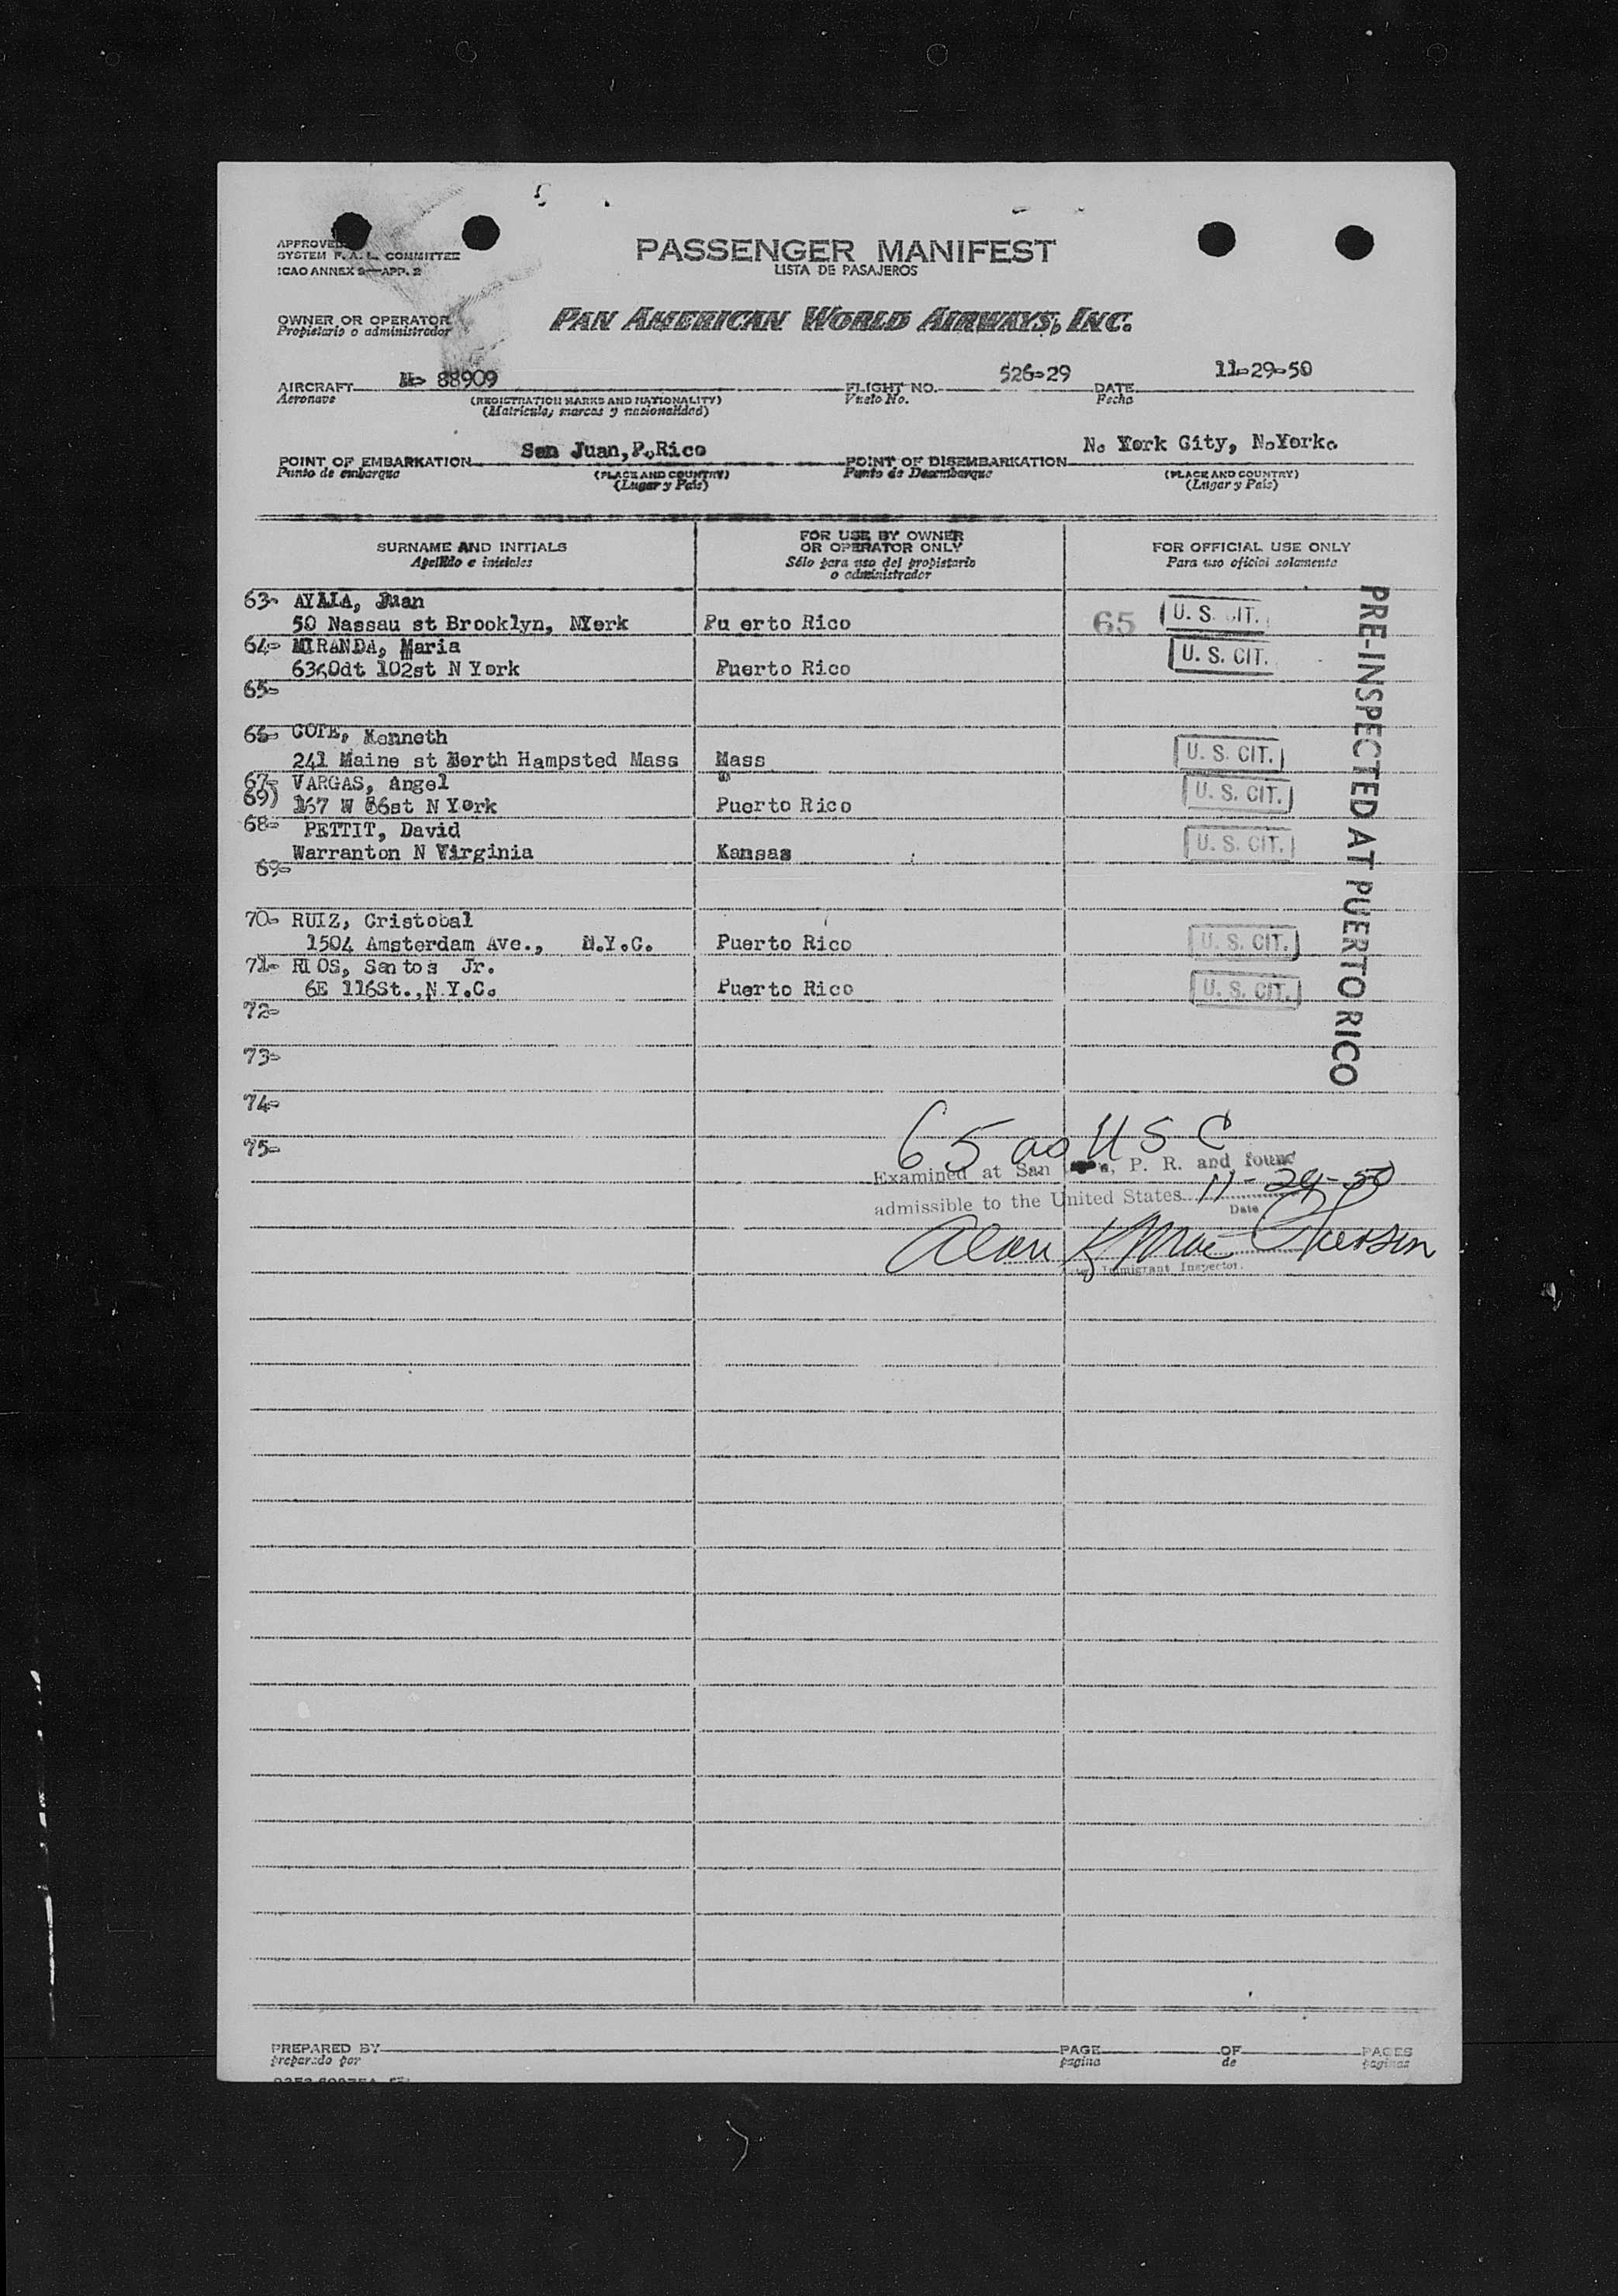 APPROVED
SYSTEM F. A. L. COMMITTEE
ICAO ANNEX 9—APP. 2
PASSENGER MANIFEST
LISTA DE PASAJEROS
OWNER OR OPERATOR
Propietario o administrador
PAN AMERICAN WORLD AIRWAYS, INC.
AIRCRAFT N- 88909 FLIGHT NO. 526-29 DATE 11-29-50
Aeronave (REGISTRATION MARKS AND NATIONALITY) Vuelo No. Fecha
(Matricula, marcas y nacionalidad)
POINT OF EMBARKATION San Juan, P.Rico POINT OF DISEMBARKATION N. York City, N.York.
Punto de embarque (PLACE AND COUNTRY) Punto de Desembarque (PLACE AND COUNTRY)
(Lugar y País) (Lugar y País)
SURNAME AND INITIALS FOR USE BY OWNER OR OPERATOR ONLY FOR OFFICIAL USE ONLY
Apellido e iniciales Sólo para uso del propietario o administrador Para uso oficial solamente
63- AYALA, Juan
50 Nassau st Brooklyn, NYork Pu erto Rico 65 U. S. CIT.
64- MIRANDA, Maria
102st N York Puerto Rico U. S. CIT.
65-
66- Kenneth
241 Maine st North Hampsted Mass Mass U. S. CIT.
67- VARGAS, Angel
69) 167 W 66st N York Puerto Rico U. S. CIT.
68- PETTIT, David
Warranton N Virginia Kansas U. S. CIT.
69-
70- RUIZ, Cristobal
1504 Amsterdam Ave., N.Y.C. Puerto Rico U. S. CIT.
71- RIOS, Santos Jr.
6E 116St., N.Y.C. Puerto Rico U. S. CIT.
72-
73-
74-
75-
PRE-INSPECTED AT PUERTO RICO
65 as U S C
Examined at San P. R. and found
admissible to the United States 11-29-50
Date
Alan K Mac Pherson
Immigrant Inspector.
PREPARED BY PAGE OF PAGES
preparado por pagina de paginas